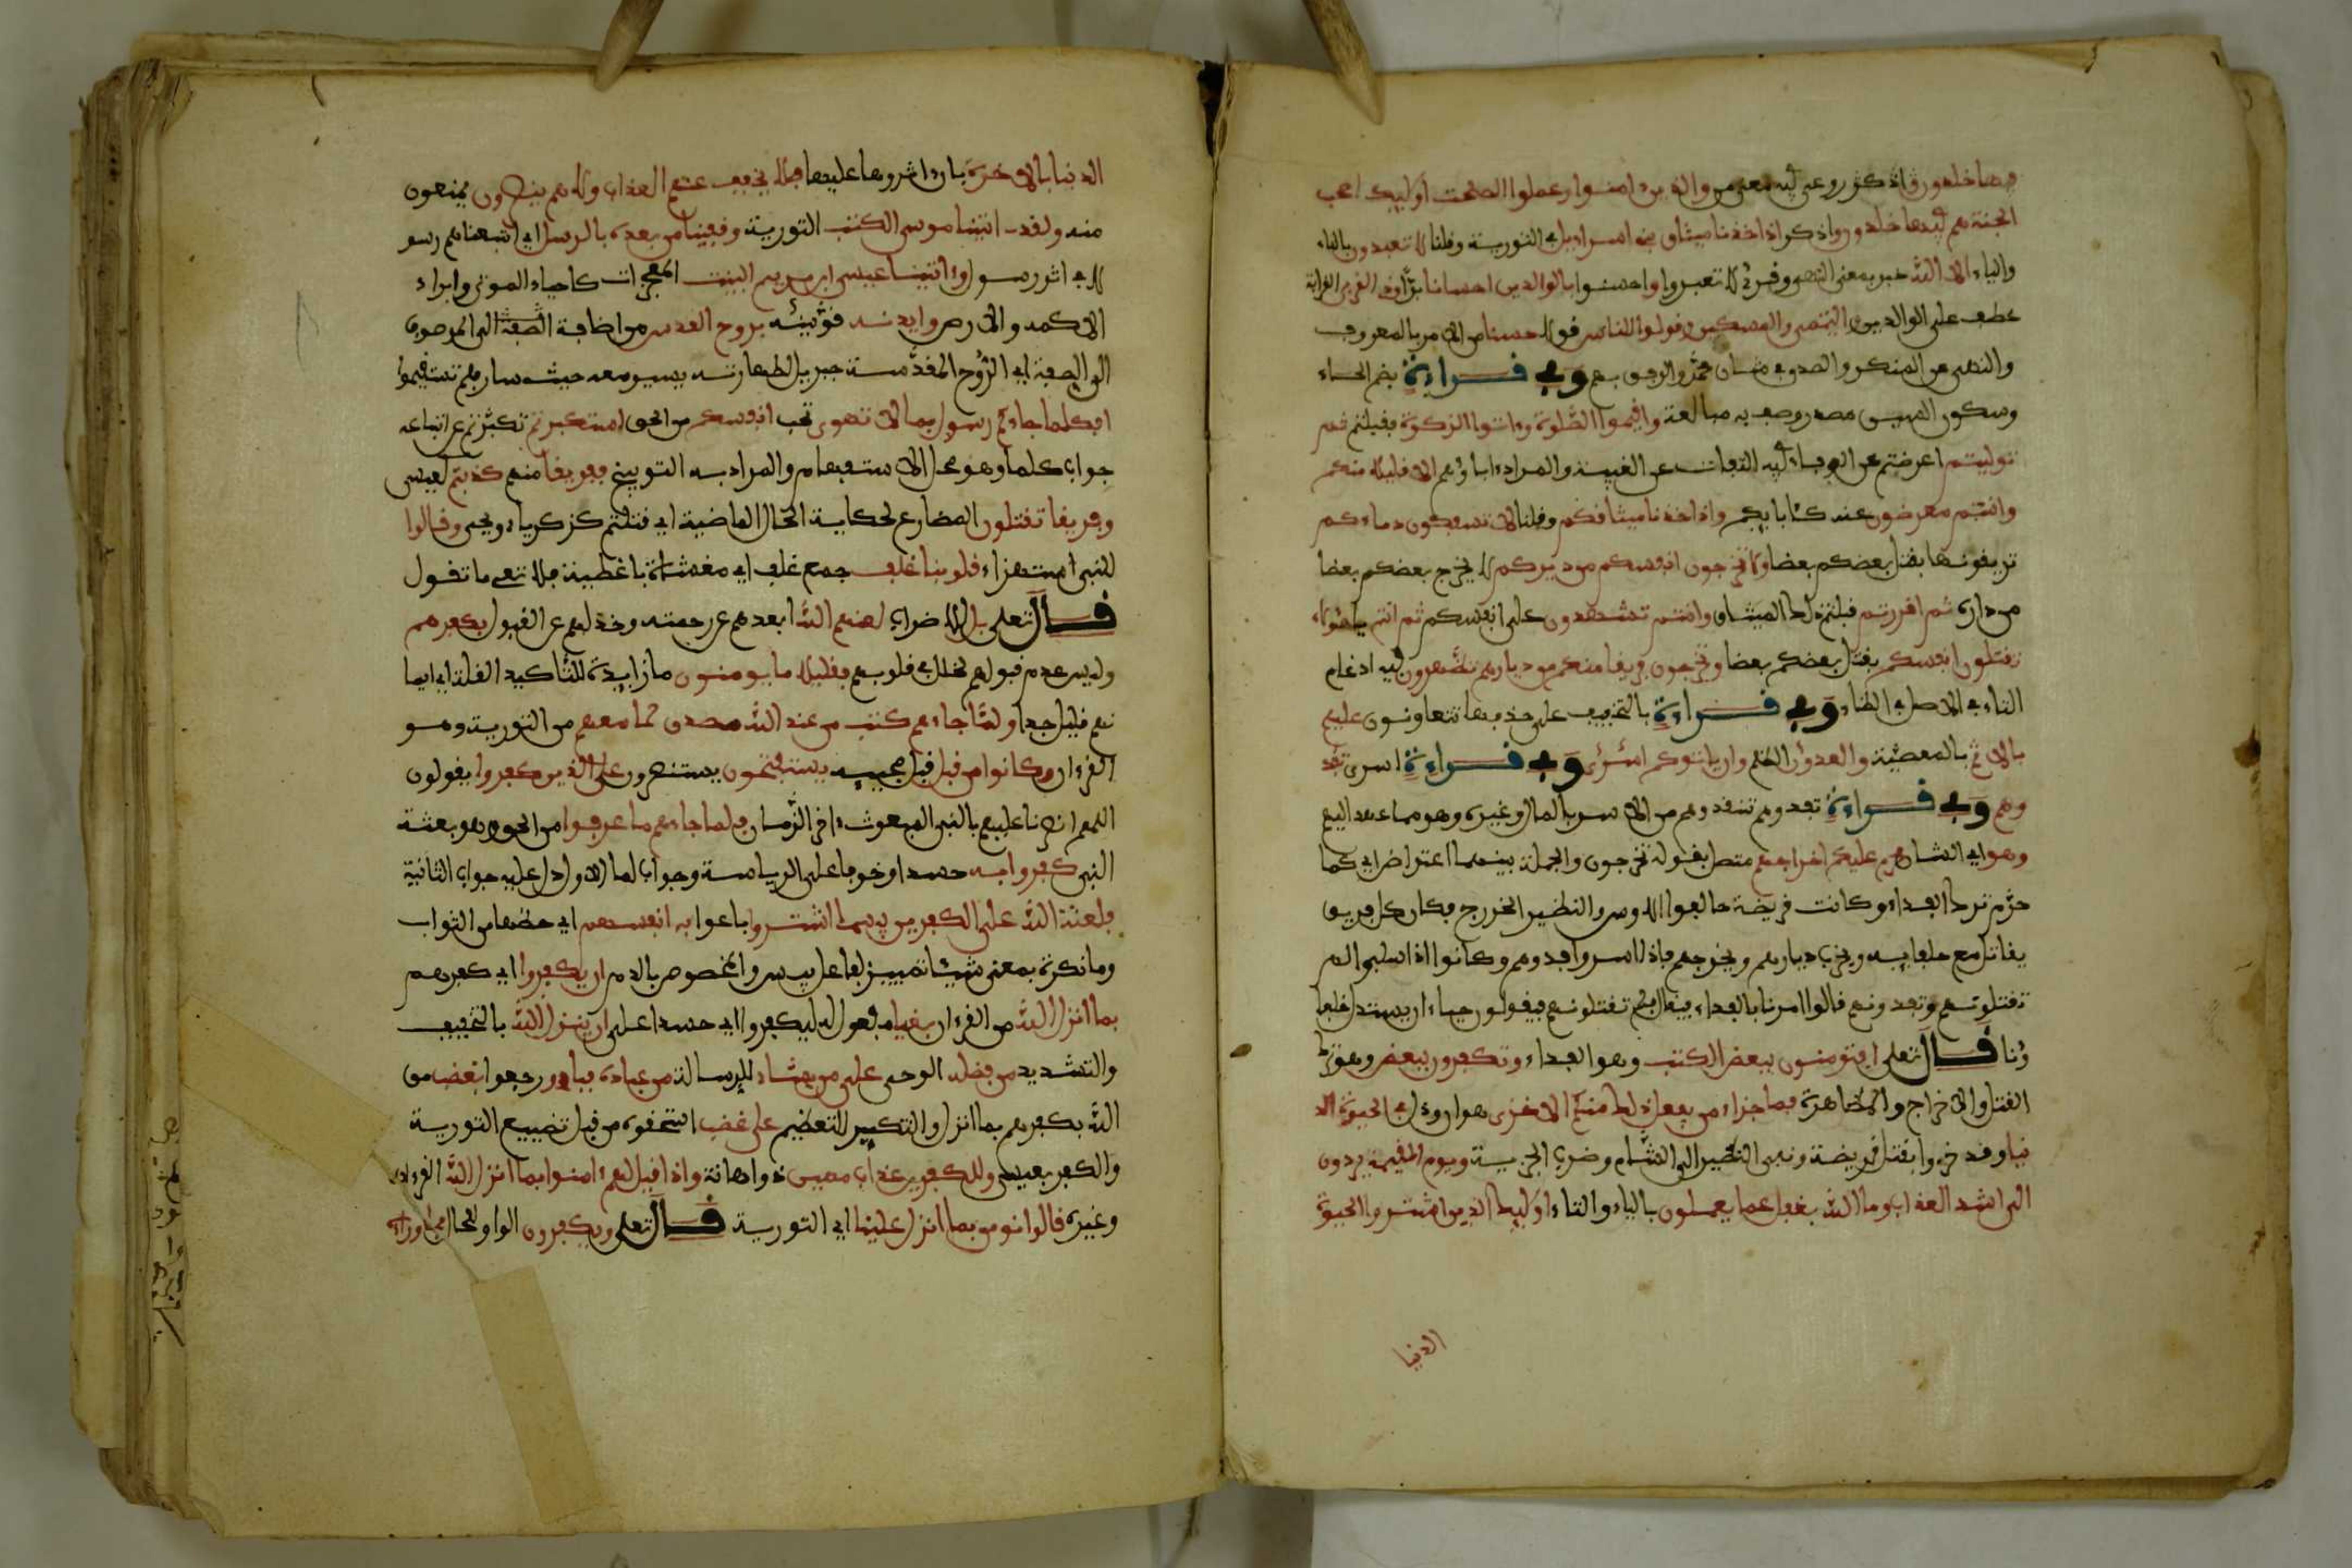 فيها خلدون واذكر روعي فيه معنى من والذين ءامنوا وعملوا الصلحت أوليك اصحب
الجنة هم فيها خلدون واذكر اذ اخذنا ميثاق بني اسراءيل في التورية وقلنا لا تعبدون بالتاء
والياء الا الله خبر بمعنى النهي وقرئ لا تعبدوا واحسنوا بالوالدين احسانا برّا وذي القربى القرابة
عطف على الوالدين واليتمى والمسكين وقولوا للناس قولا حسنا من الامر بالمعروف
والنهي عن المنكر والصدق في شان محمّد والرفق بهم وفي قراءة بضم الحاء
وسكون السين مصدر وصف به مبالغة واقيموا الصّلوة وءاتوا الزكوة فقبلتم ثم
توليتم اعرضتم عن الوفاء فيه التفات عن الغيبة والمراد ءاباؤهم الا قليلا منكم
وانتم معرضون عنه كئابايكم واذ اخذنا ميثاقكم وقلنا لا تسفكون دماءكم
تريقونها بقتل بعضكم بعضا ولا تخرجون انفسكم من ديركم لا يخرج بعضكم بعضا
من داره ثم اقررتم قبلتم ذلك الميثاق وانتم تشهدون على انفسكم ثم انتم يا هؤلاء
تقتلون انفسكم بقتل بعضكم بعضا وتخرجون فريقا منكم من ديارهم تظّهرون فيه ادغام
التاء في الاصل في الظاء وفي قراءة بالتخفيف على حذفها تتعاونون عليهم
بالاثم بالمعصية والعدوٰن الظلم وان ياتوكم اسٰرى وفي قراءة اسرى تفد
وهم وفي قراءة تفدوهم تنقذوهم من الاسر بالمال وغيره وهو مما عهد اليهم
وهو اي الشان محرم عليكم اخراجهم متصل بقوله تخرجون والجملة بينهما اعتراض اي كما
حرّم ترك الفداء وكانت قريضة حالفوا الاوس والنظير الخزرج فكان كل فريق
يقاتل مع حلفايه ويخرب ديارهم ويخرجهم فاذا اسروا فدوهم وكانوا اذا سلوا لم
تقتلونهم وتفدونهم قالوا امرنا بالفداء فيقال فلم تقتلونهم فيقولون حياء ان يستذل حلفا
ؤنا قال تعلى افتومنون ببعض الكتب وهو الفداء وتكفرون ببعض وهو ترك
القتل والاخراج والمظاهرة فما جزاء من يفعل ذلك منكم الا خزى هوان وذل في الحيوة الد
نيا وقد خزوا بقتل قريضة ونفي النظير الى الشام وضرب الجزية ويوم القيمة يردون
الى اشد العذاب وما الله بغفل عما يعملون بالياء والتاء أوليك الذين اشتروا الحيوة
الدنيا
الدنيا بالاخرة بان ءاثروها عليها فلا يخفف عنهم العذاب ولا هم ينصرون يمنعون
منه ولقد ءاتينا موسى الكتب التورية وقفينا من بعده بالرسل اي اتبعناهم رسو
لا في اثر رسول وءاتينا عيسى ابن مريم البينت المعجزات كاحياء الموتى وابراء
الاكمه والابرص وايدنه قوّينٰه بروح القدس من اضافة الصفة الى الموصوف
الى الصفة اي الرّوح المقدّسة جبريل لطهارته يسير معه حيث سار فلم تستقيموا
افكلما جاءكم رسول بما لا تهوى تحب انفسكم من الحق استكبرتم تكبّرتم عن اتباعه
جواب كلما وهو محل الاستفهام والمراد به التوبيخ ففريقا منهم كذبتم لعيسى
وفريقا تقتلون المضارع لحكاية الحال الماضية اي قتلتم كزكرياء ويحيى وقالوا
للنبي استهزاء قلوبنا غلف جمع غلف اي مغشاة باغطية فلا تعي ما تقول
قال تعلى بل للاضراب لعنهم الله ابعدهم عن رحمته وخذلهم عن القبول بكفرهم
وليس عدم قبولهم لخلل في قلوبهم فقليلا ما يومنون ما زايدة للتاكيد القلة اي ايما
نهم قليل جدا ولمّا جاءهم كتب من عند الله مصدق لما معهم من التورية وهو
القرءان وكانوا من قبل قبل مجييه يستفتحون يستنصرون على الذين كفروا يقولون
اللهم انصرنا عليهم بالنبي المبعوث ءاخر الزّمان فلما جاءهم ما عرفوا من الحق وهو بعثة
النبي كفروا به حسدا وخوفا على الرياسة وجواب لما الاولى دل عليه جواب الثانية
فلعنة الله على الكفرين بيسما اشتروا باعوا به انفسهم اي حظها من الثواب
وما نكرة بمعنى شيئا تمييز لفاعل بيس والمخصوص بالذم ان يكفروا اي كفرهم
بما انزل الله من القرءان بغيا مفعول له ليكفروا اي حسدا على ان ينزل الله بالتخفيف
والتشديد من فضله الوحي على من يشاء للرسالة من عباده فباءو رجعوا بغضب من
الله بكفرهم بما انزل والتنكير للتعظيم على غضب استحقوه من قبل تضييع التورية
والكفر بعيسى وللكفرين عذاب مهين ذو اهانة واذا قيل لهم ءامنوا بما انزل الله القرءان
وغيره قالوا نومن بما انزل علينا اي التورية قال تعلى ويكفرون الواو للحال بما وراءه